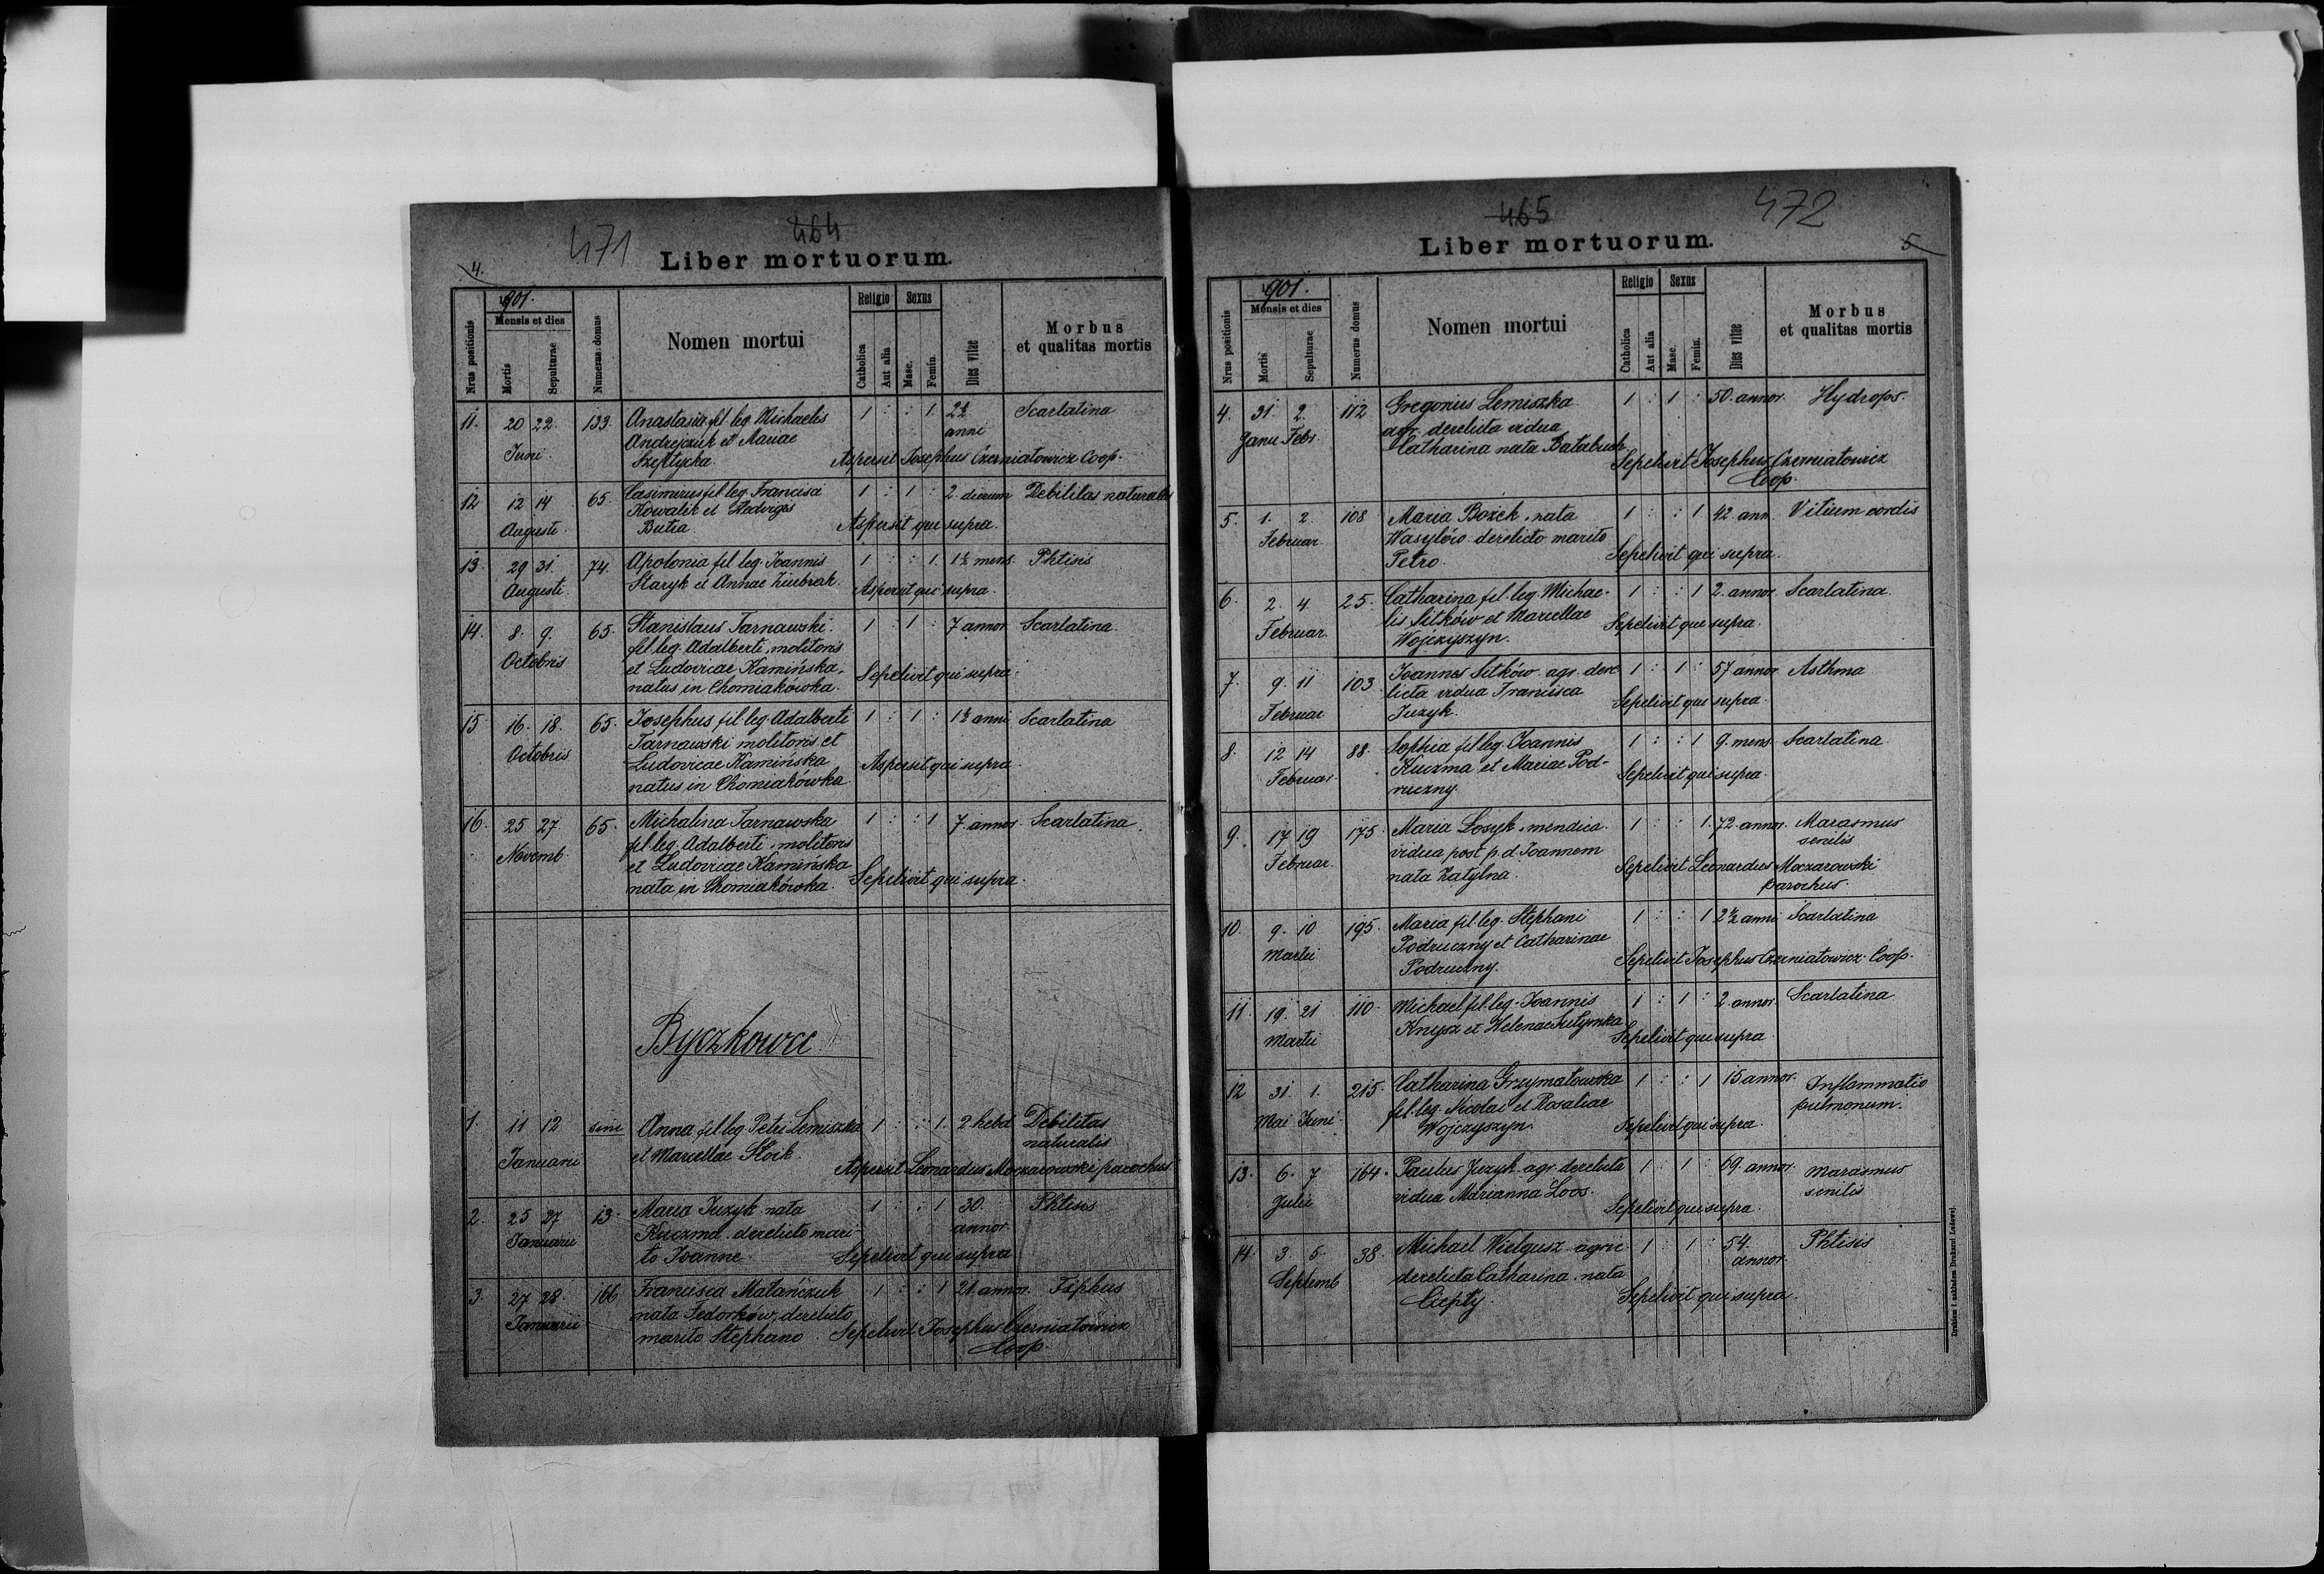 471 464
4. Liber mortuorum.
1901.
Nrus positionis
Mensis et dies
Mortis
Sepulturae
Numerus domus
Nomen mortui
Religio
Catholica
Aut alia
Sexus
Masc.
Femin.
Dies vitae
Morbus
et qualitas mortis
11. 20 22. 133. Anastasia fil. leg. Michaelis 1 : : 1. 2½ Scarlatina
Juni Andrejczuk et Mariae anni
Szeptycka. Aspersit Josephus Czerniatowicz Coop.
12 12 14 65. Casimirus fil. leg. Francisci 1 : 1 : 2. dierum Debilitas naturalis
Augusti. Kowalik et Hedviges
Butra. Aspersit qui supra.
13. 29 31. 74. Apolonia fil. leg. Joannis 1 : : 1. 1½ mens. Phtisis
Augusti Staryk et Annae Ziubrak. Aspersit qui supra.
14. 8. 9. 65. Stanislaus Tarnawski. 1 : 1 : 7 annor. Scarlatina.
Octobris fil. leg. Adalberti, molitoris
et Ludovicae Kamińska,
natus in Chomiakówka. Sepelivit qui supra.
15 16. 18. 65. Josephus fil. leg. Adalberti 1 : 1 : 1½ anni Scarlatina
Octobris Tarnawski molitoris et
Ludovicae Kamińska
natus in Chomiakówka Aspersit qui supra.
16. 25 27 65. Michalina Tarnawska 1 : : 1 7 annor. Scarlatina.
Novemb. fil. leg. Adalberti, molitoris
et Ludovicae Kamińska
nata in Chomiakówka. Sepelivit qui supra.
Byczkowce
1. 11 12 sine Anna fil. leg. Petri Lemiszka 1 : : 1. 2 hebd. Debilitas
Januarii et Marcellae Słoik. naturalis
Aspersit Leonardus Moczarowski parochus
2. 25 27 13. Maria Juzyk nata 1 : : 1 30. Phtisis
Januarii Kuczma derelicto mari- annor.
to Joanne. Sepelivit qui supra
3. 27 28. 166 Francisca Matańczuk 1 : : 1 21. annor. Tiphus
Januarii nata Fedorków, derelicto
marito Stephano. Sepelivit Josephus Czerniatowicz
Coop.
465 472
Liber mortuorum. 5
1901.
Nrus positionis
Mensis et dies
Mortis
Sepulturae
Numerus domus
Nomen mortui
Religio
Catholica
Aut alia
Sexus
Masc.
Femin.
Dies vitae
Morbus
et qualitas mortis
4. 31. 2. 112 Gregorius Lemiszka 1 : 1 : 50. annor. Hydrops.
Janu. Febr. agr. derelicta vidua
Catharina nata Bałabuch
Sepelivit Josephus Czerniatowicz
Coop.
5. 1. 2. 108 Maria Bożek, nata 1 : : 1 42. ann. Vitium cordis
Februar. Wasylów derelicto marito
Petro. Sepelivit qui supra.
6. 2. 4. 25. Catharina fil. leg. Michae- 1 : : 1 2. annor. Scarlatina.
Februar. lis Sitków et Marcellae
Wojczyszyn. Sepelivit qui supra.
7. 9. 11 103 Joannes Sitków agr. dere- 1 : 1 : 57 annor. Asthma
Februar licta vidua Francisca
Juzyk. Sepelivit qui supra.
8. 12 14 88. Sophia fil. leg. Joannis 1 : : 1 9. mens. Scarlatina.
Februar. Kuczma et Mariae Pod-
ruczny. Sepelivit qui supra.
9. 17 19 175. Maria Łosyk, mendica. 1 : : 1. 72 annor. Marasmus
Februar. vidua post p. d. Joannem senilis
nata Zatylna. Sepelivit Leonardus Moczarowski
parochus.
10. 9. 10 195. Maria fil. leg. Stephani 1 : : 1 2½ anni Scarlatina
Martii Podruczny et Catharinae
Podruczny. Sepelivit Josephus Czerniatowicz Coop.
11. 19. 21 110. Michael fil. leg. Joannis 1 : 1 : 2. annor. Scarlatina.
Martii Knysz et Helenae Sutymka
Sepelivit qui supra.
12 31 1. 215. Catharina Grzymałowska 1 : : 1 15 annor. Inflammatio
Mai Juni fil. leg. Nicolai et Rosaliae pulmonum.
Wojczyszyn. Sepelivit qui supra.
13. 6. 7 164. Paulus Juzyk agr. derelicta 1 : 1 : 69. annor. Marasmus
Julii vidua Marianna Łoos. senilis
Sepelivit qui supra.
14. 3. 5. 38. Michael Wielgusz agric. 1 : 1 : 54. Phtisis
Septemb. derelicta Catharina, nata annor.
Ciepły. Sepelivit qui supra.
Drukiem i nakładem Drukarni Ludowej.